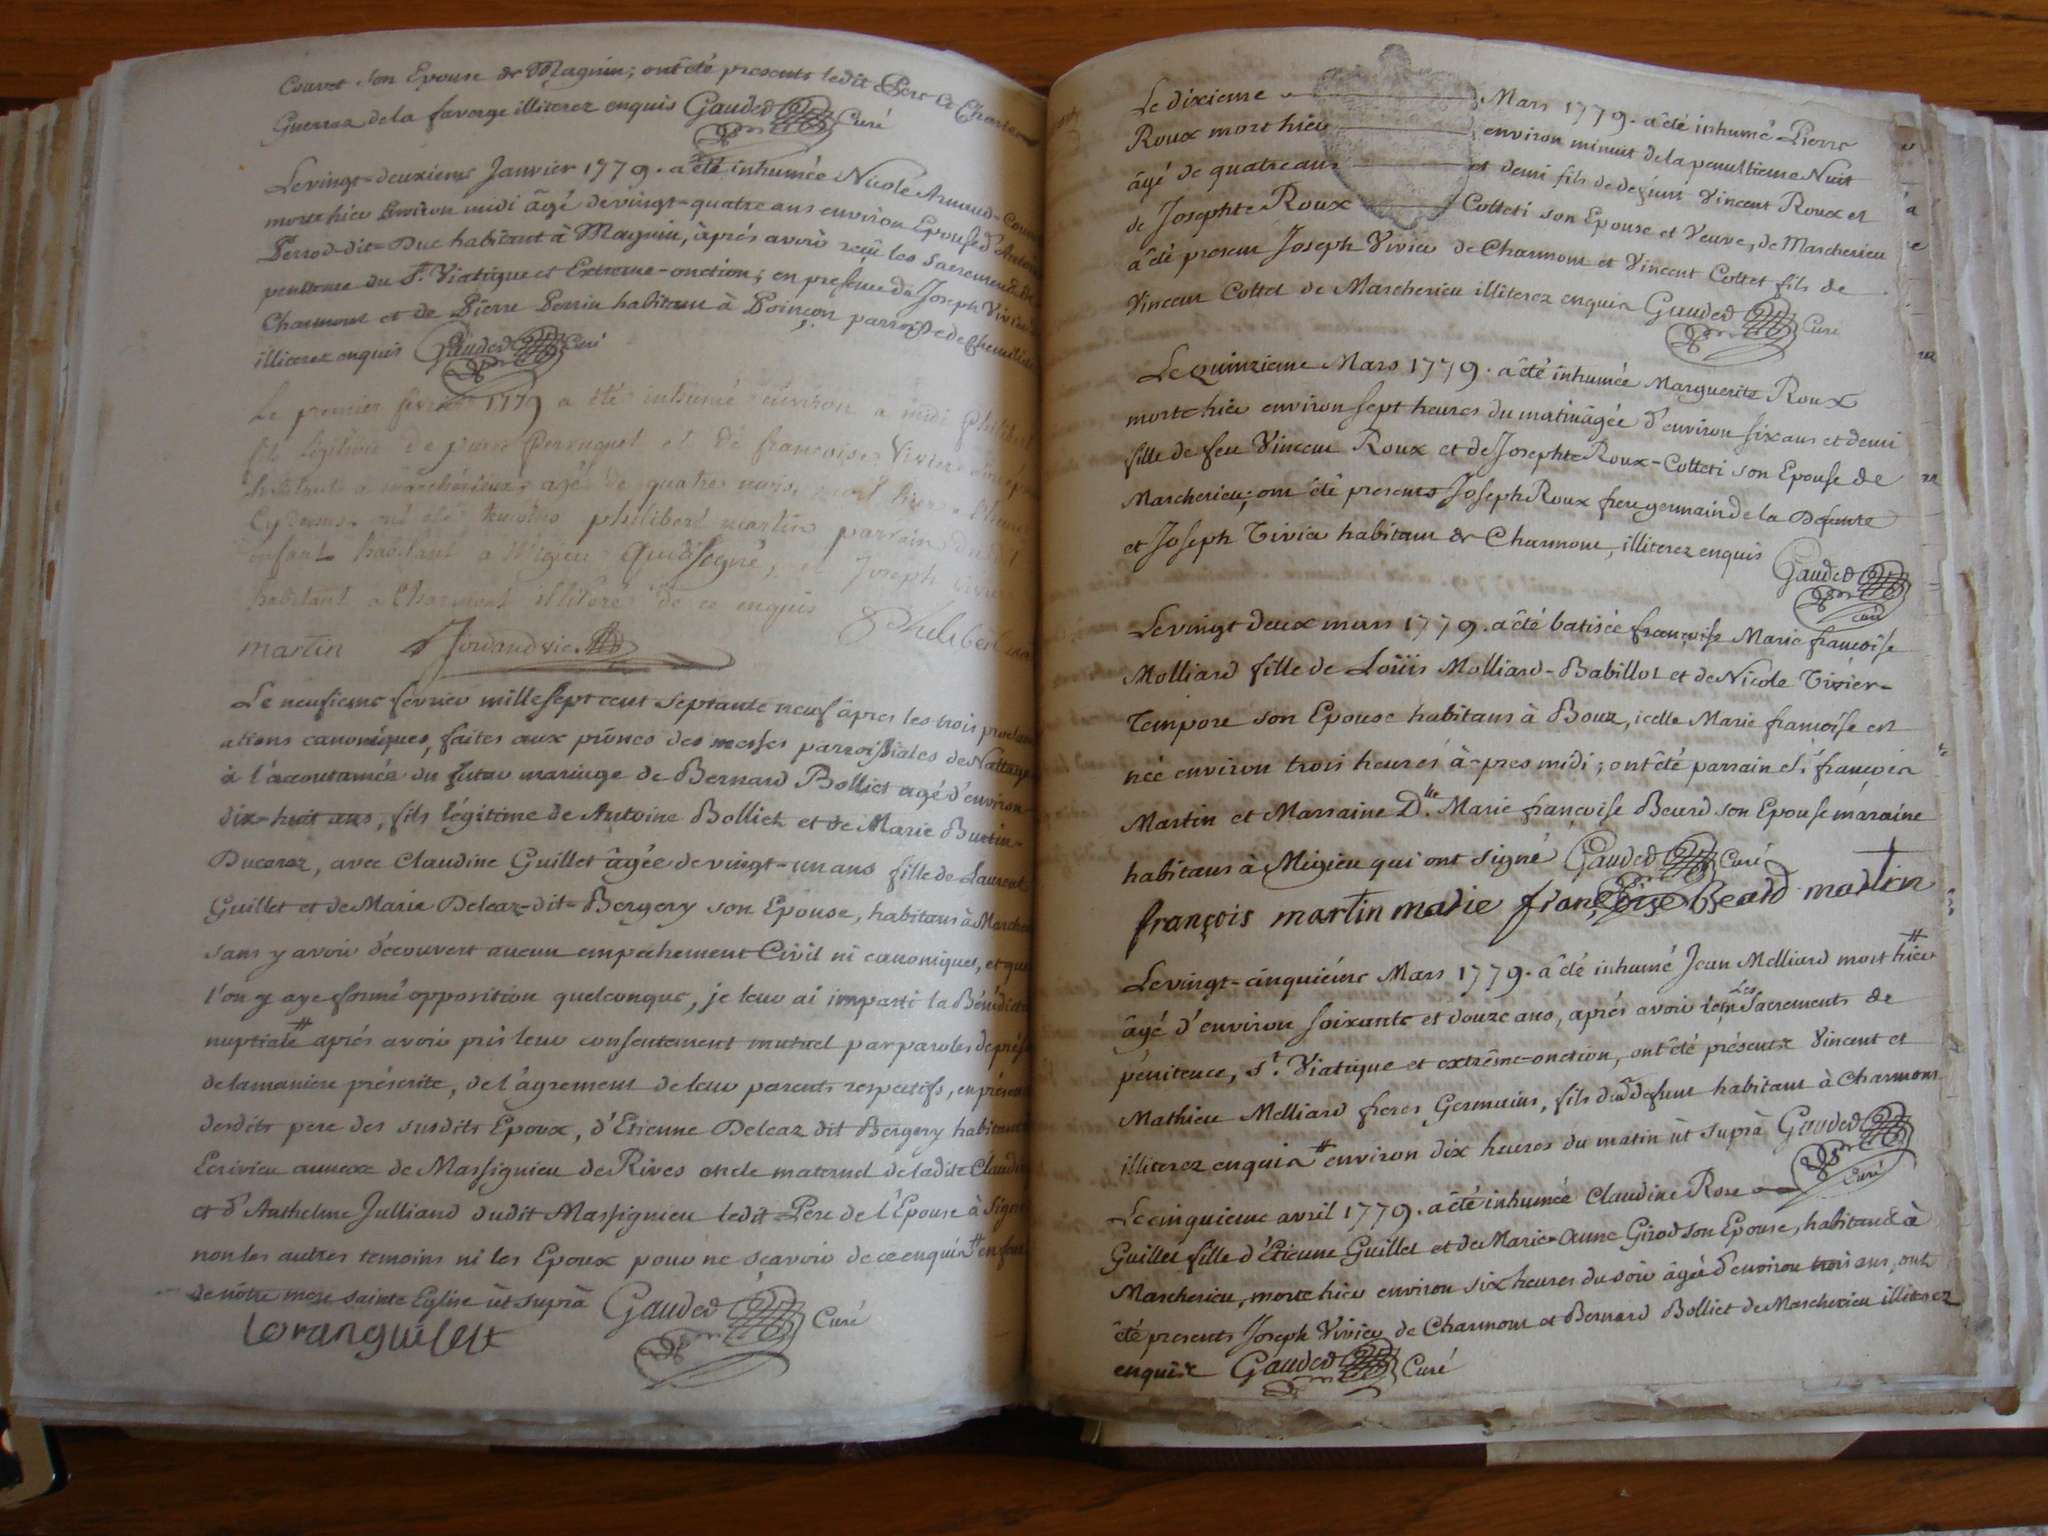 Couvet son Epouse de Magnin; ont été presents ledit Pere et Charle
Guerraz de la faverge illiterez enquis Gauded Curé
Le vingt-deuxieme Janvier 1779. a été inhumée Nicole Arnaud-
morte hier environ midi âgé de vingt-quatre ans environ Epouse d'Antoine
Perrod-dit-Duc habitant à Magnin, après avoir reçu les Sacremens de
penitence du St. Viatique et Extreme-onction; en presence de Joseph Vivier
Charmont et de Pierre Perrin habitant à Poinçon parroisse de
illiterez enquis Gauded Curé
Le premier fevrier 1779 a été inhumé environ a midi Philibert
fils legitime de pierre perruquet et de francoise Vivier son
habitants a marcherieux agé de quatre mort hier
ont été temoins philibert martin parrain dudit
enfant habitant a Migieu qui a signé, et Joseph vivier
habitant a Charmont illiteré de ce enquis Philibert
martin Jordand vic.
Le neufieme fevrier mille sept cent septante neuf âpres les trois proclam
ations canoniques, faites aux prônes des messes parroissiales de Nattage
à l'accoutumée du futur mariage de Bernard Bolliet agé d'environ
dix-huit ans, fils légitime de Antoine Bolliet et de Marie Burtin-
Ducaroz, avec Claudine Guillet âgée de vingt-un ans fille de Laurent
Guillet et de Marie Deleaz-dit-Bergery son Epouse, habitans à Marche
sans y avoir découvert aucun empechement Civil ni canoniques, et que
l'on y aye formé opposition quelconque, je leur ai imparti la Bénédict
nuptiale # aprés avoir pris leur consentement mutuel par paroles de prése
de la maniere préscrite, de l'agrement de leur parents respectifs, en présen
desdits pere des susdits Epoux, d'Etienne Deleaz dit Bergery habitant
Ecrivieu annexe de Massignieu de Rives oncle maternel de ladite Claudine
et d'Anthelme Julliand dudit Massignieu ledit Pere de l'Epouse à Signé
non les autres temoins ni les Epoux pour ne sçavoir de ce enquis # en face
de nôtre mere sainte Eglise ut suprà Gauded Curé
loranguilelt
Le dixieme Mars 1779. a été inhumé Pierre
Roux mort hier environ minuit de la penultieme Nuit
âgé de quatre ans et demi fils de defunt Vincent Roux et
de Josephte Roux Colleti son Epouse et Veuve, de Marcherieu
a été present Joseph Vivier de Charmont et Vincent Collet fils de
Vincent Collet de Marcherieu illiterez enquis Gauded Curé
Le quinzieme Mars 1779. a été inhumée Marguerite Roux
morte hier environ sept heures du matin âgée d'environ six ans et demi
fille de feu Vincent Roux et de Josephte Roux-Colleti son Epouse de
Marcherieu; ont été presents Joseph Roux frere germain de la Defunte
et Joseph Vivier habitant de Charmont, illiterez enquis Gauded
Curé
Le vingt deux mars 1779. a été batisée françoise Marie françoise
Molliard fille de Loüis Molliard-Babillot et de Nicole Tivier-
Tempore son Epouse habitans à Bour, icelle Marie françoise est
née environ trois heures à-pres midi; ont été parrain Sr. françois
Martin et Marraine Dlle Marie françoise Beard son Epouse maraine
habitans à Migieu qui ont signé Gauded Curé
françois martin marie françoise Beard martin
Le vingt-cinquiéme Mars 1779. a été inhumé Jean Melliard mort hier #
âgé d'environ soixante et douze ans, aprés avoir reçu les Sacrements de
pénitence, St. Viatique et extrême-onction, ont été présents Vincent et
Mathieu Melliard freres Germains, fils dud. defunt habitant à Charmont
illiterez enquis # environ dix heures du matin ut suprà Gauded
Curé
Le cinquieme avril 1779. a été inhumée Claudine Rose
Guillet fille d'Etienne Guillet et de Marie-Anne Girod son Epouse, habitant à
Marcherieu, morte hier environ six heures du soir âgée d'environ trois ans, ont
été presents Joseph Vivier de Charmont et Bernard Bolliet de Marcherieu illiterez
enquise Gauded Curé